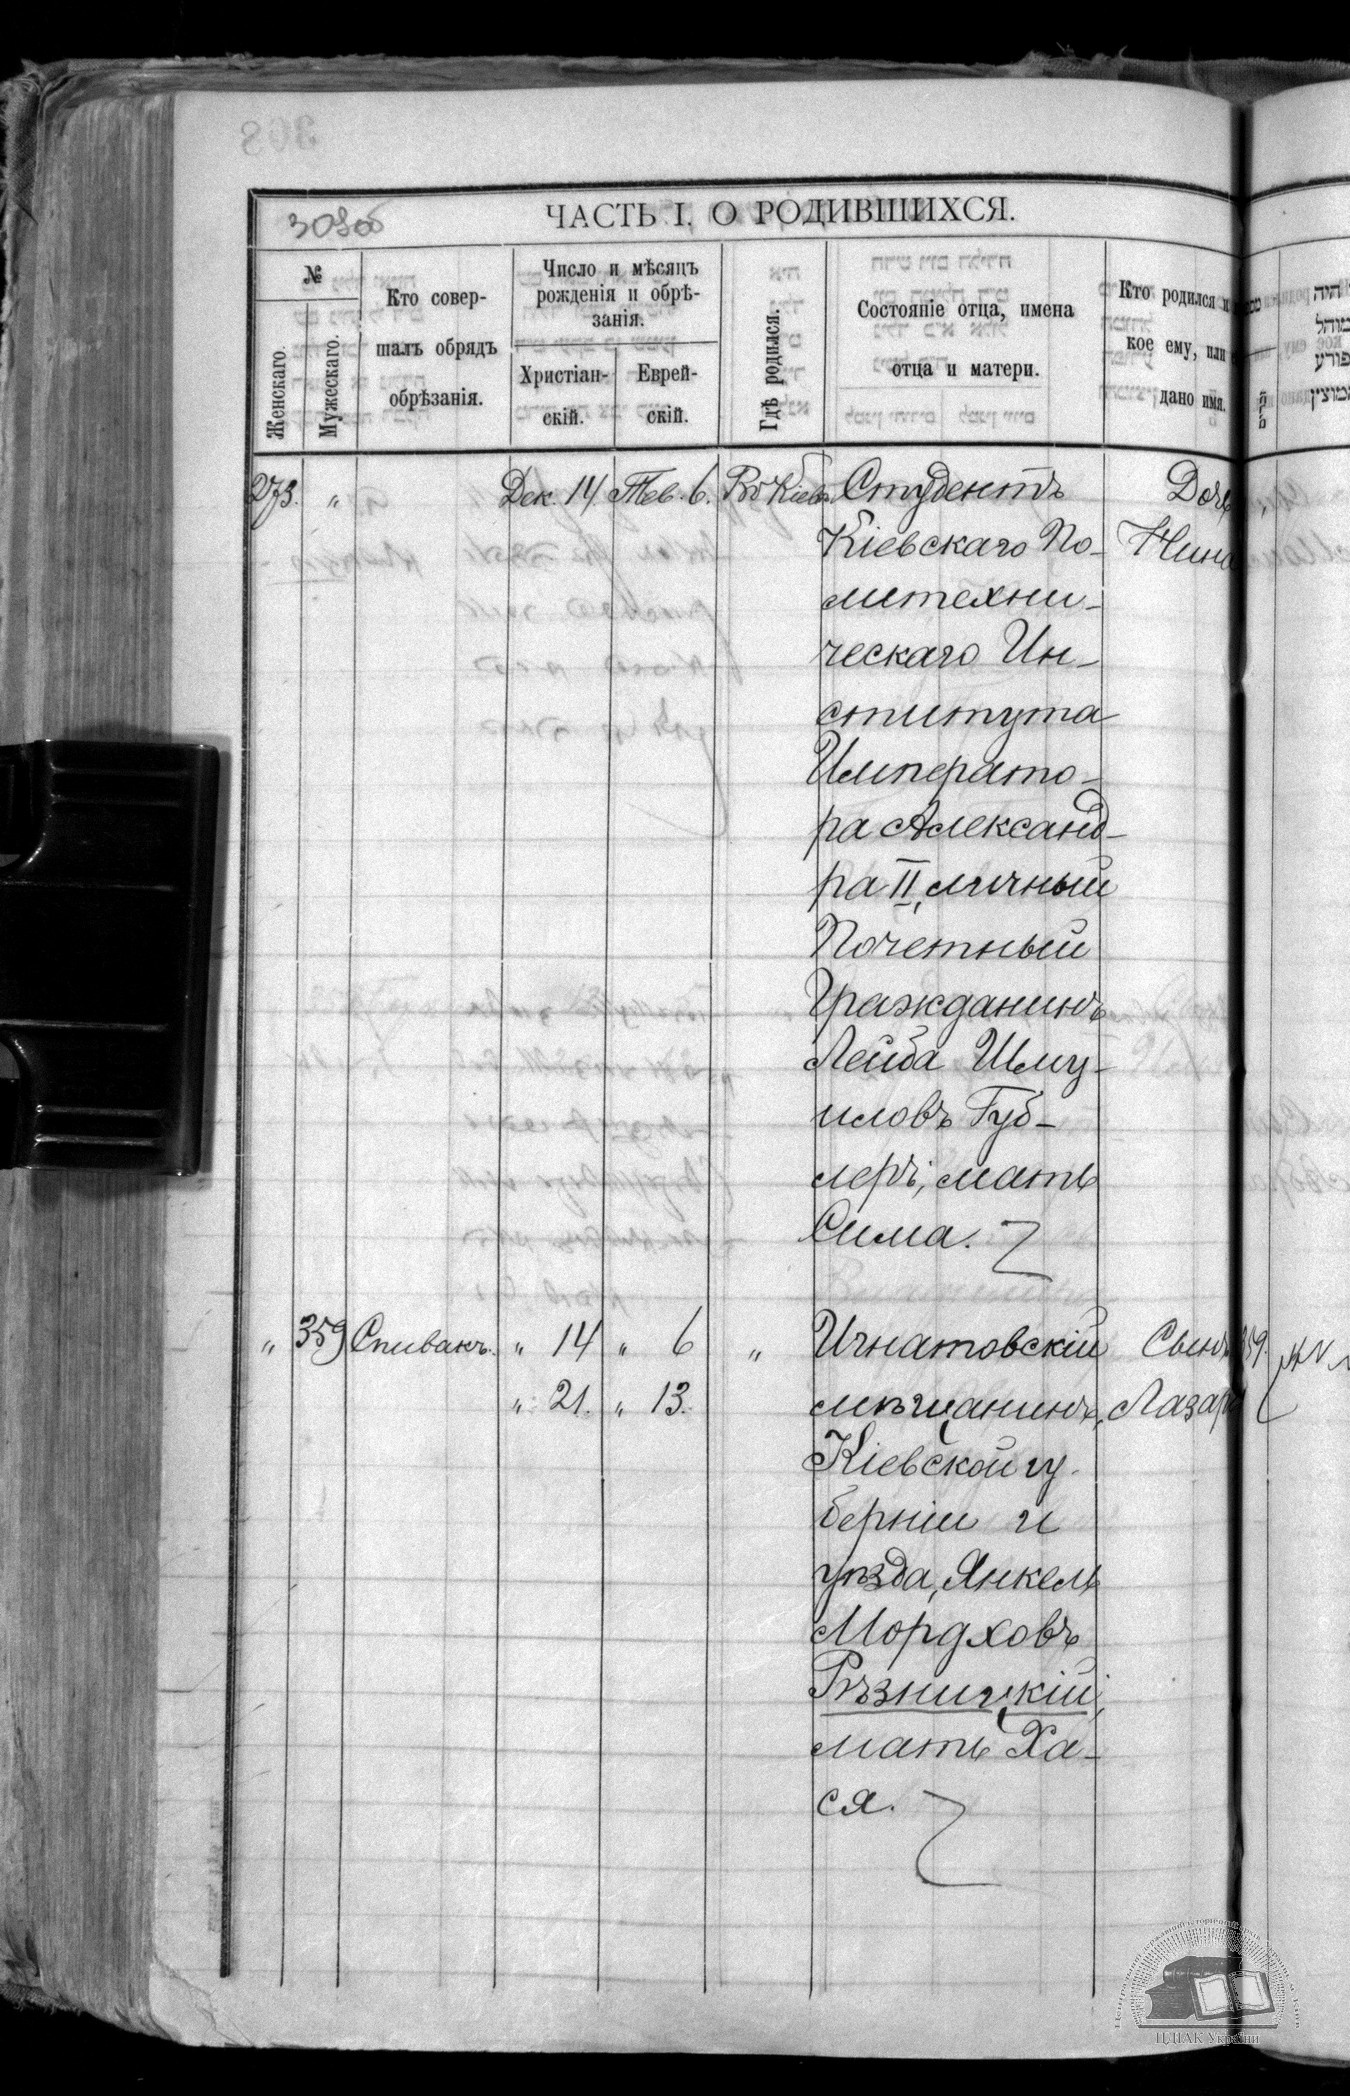 308об
ЧАСТЬ I. О РОДИВШИХСЯ.
№
Женскаго.
Мужескаго.
Кто совер-
шалъ обрядъ
обрѣзанія.
Число и мѣсяцъ
рожденія и обрѣ-
занія.
Христіан-
скій.
Еврей-
скій.
Гдѣ родился.
Состояніе отца, имена
отца и матери.
Кто родился и
кое ему, или
дано имя.
273. " Дек. 14. Тев. 6. Въ Кіевѣ Студентъ Дочь
Кіевскаго По- Нина
литехни-
ческаго Ин-
ститута
Императо-
ра Александ-
ра II, личный
Почетный
Гражданинъ
Лейба Шму-
иловъ Губ-
леръ, мать
Сима.
" 359 Спивакъ. " 14 " 6 " Игнатовскій Сынъ 359.
" 21. " 13. мѣщанинъ, Лазарь
Кіевской гу-
берніи и
уѣзда, Янкель
Мордховъ
Рѣзницкій;
мать Ха-
ся.
ЦДІАК України